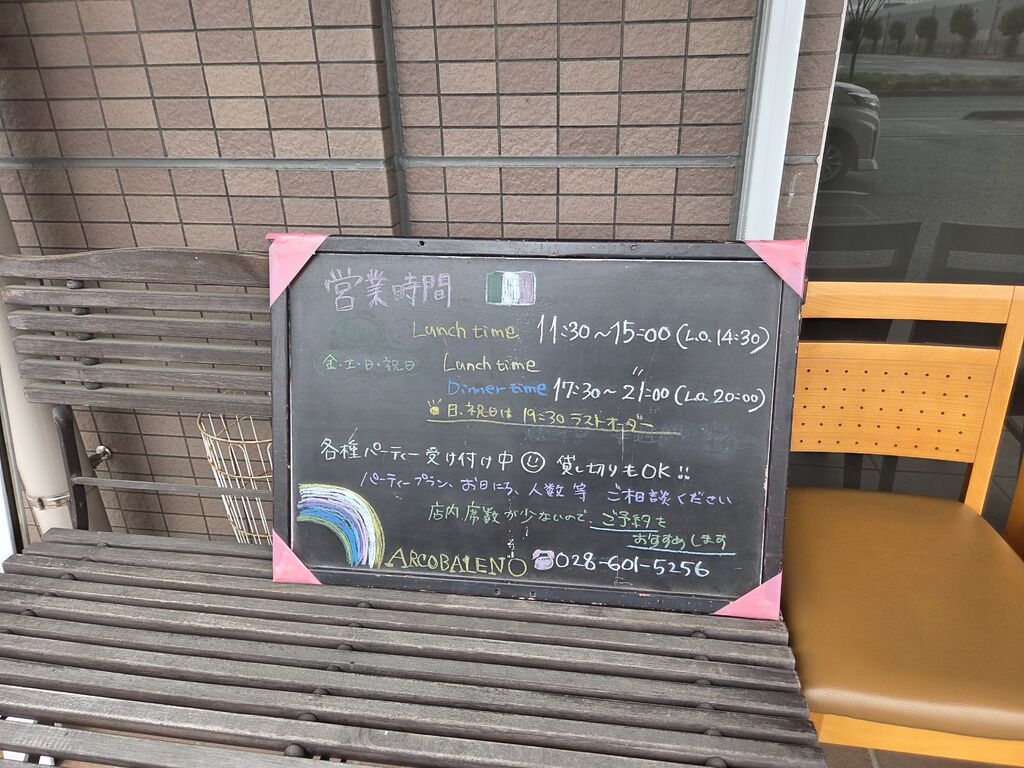 営業時間
Lunch time 11:30~15:00 (L.O. 14:30)
金・土・日・祝日 Lunch time
Dinner time 17:30~21:00 (L.O. 20:00)
日、祝日は 19:30 ラストオーダー
各種パーティー受け付け中 貸し切りもOK!!
パーティープラン、お日にち、人数等 ご相談ください
店内席数が少ないので ご予約を
おすすめします
ARCOBALENO 028-601-5256